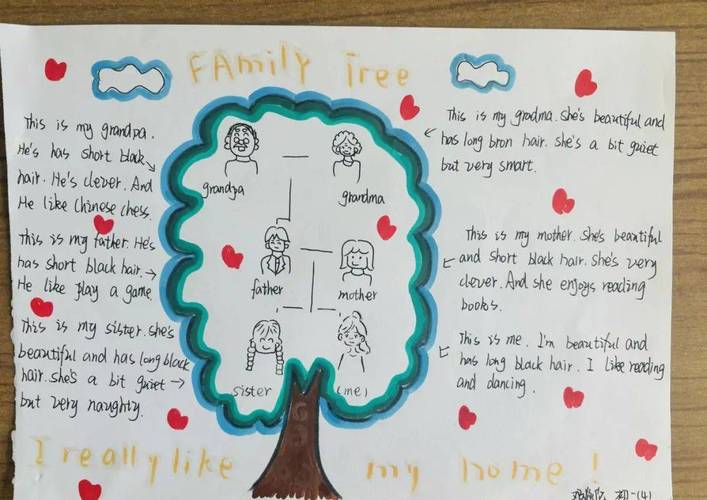 FAmily Tree
This is my grandpa.
He's has short black
hair. He's clever. And
He like Chinese chess.
This is my father. He's
has short black hair.
He like play a game
This is my sister. she's
beautiful and has long black
hair. she's a bit quiet
but very naughty.
grandpa
grandma
father
mother
sister
(me)
This is my grodma. she's beautiful and
has long bron hair. she's a bit quiet
but very smart.
This is my mother. She's beautiful
and short black hair. she's very
clever. And she enjoys reading
books.
This is me. I'm beautiful and
has long black hair. I like reading
and dancing.
I really like my home!
初一(4)